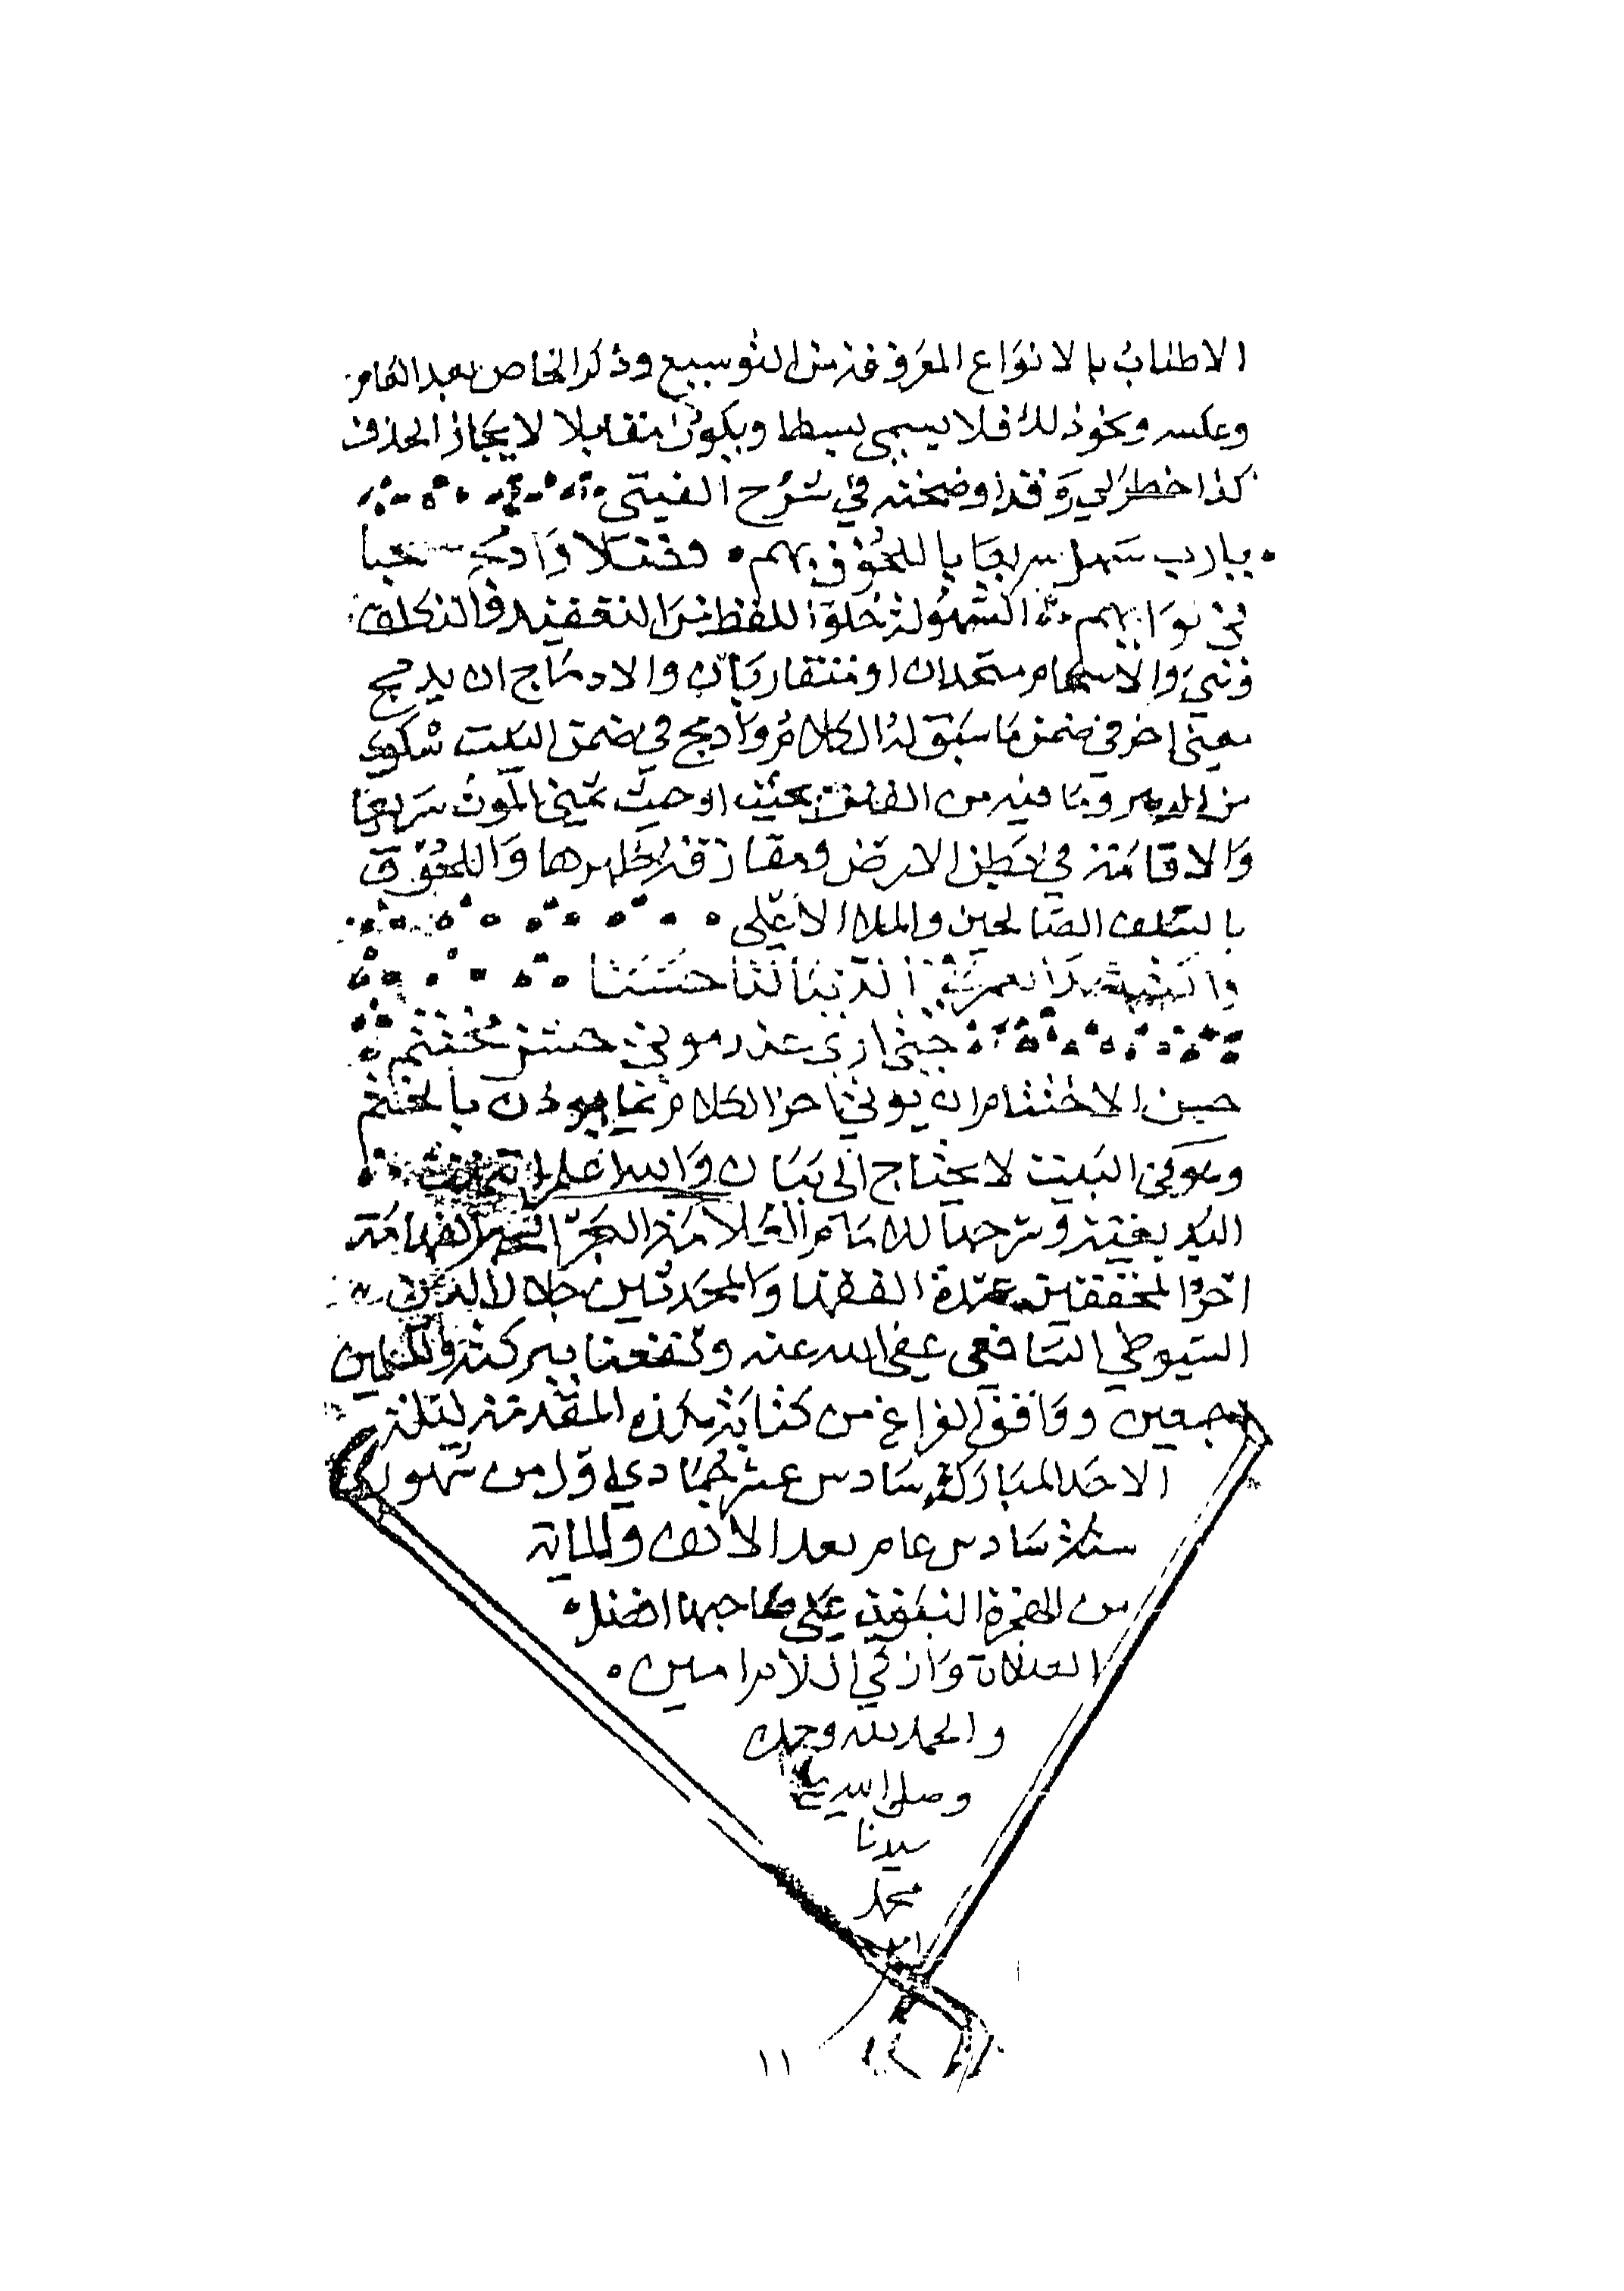 الاطناب بالانواع المعروفة من التوسيع وذكر الخاص بعد العام
وعكسه ونحو ذلك فلا يسمى بسطا ويكون مقابلا لايجاز الحذف
كذا خطر لي وقد اوضحته في شرح الفيتي
يارب سهل سريعا باللحوق بهم فضلا وادمج
في نوابهم السهولة خلو اللفظ من التعقيد والتكلف
والانسجام متحدان او متقاربان والادماج ان يدمج
معنى اخر في ضمن ما سبق له الكلام وادمج في ضمن البيت شكوى
من الدهر وما فيه من الفتن بحيث اوجبت تمني الموت سريعا
والاقامة في بطن الارض ومفارقة ظهرها واللحوق
بالسلف الصالحين والملا الاعلى
لنا حسنا
حتى ارى عند موتي حسن مختتم
حسن الاختتام ان يوتى اخر الكلام بما يوذن بالختم
وهو في البيت لا يحتاج الى بيان والله اعلم تمت
البديعية وشرحها للامام العلامة البحر الفهامة
اخر المحققين عمدة الفقها والمحدثين جلال الدين
السيوطي الشافعي عفى الله عنه ونفعنا ببركته والمسلمين
اجمعين ووافق الفراغ من كتابة هذه المقدمة ليلة
الاحد المباركة سادس عشر جمادي اول من شهور
سنة سادس عام بعد الالف والماية
من الهجرة النبوية على صاحبها افضل
الصلاة وازكى السلام امين
والحمد لله وحده
وصلى الله على
سيدنا
محمد
١١